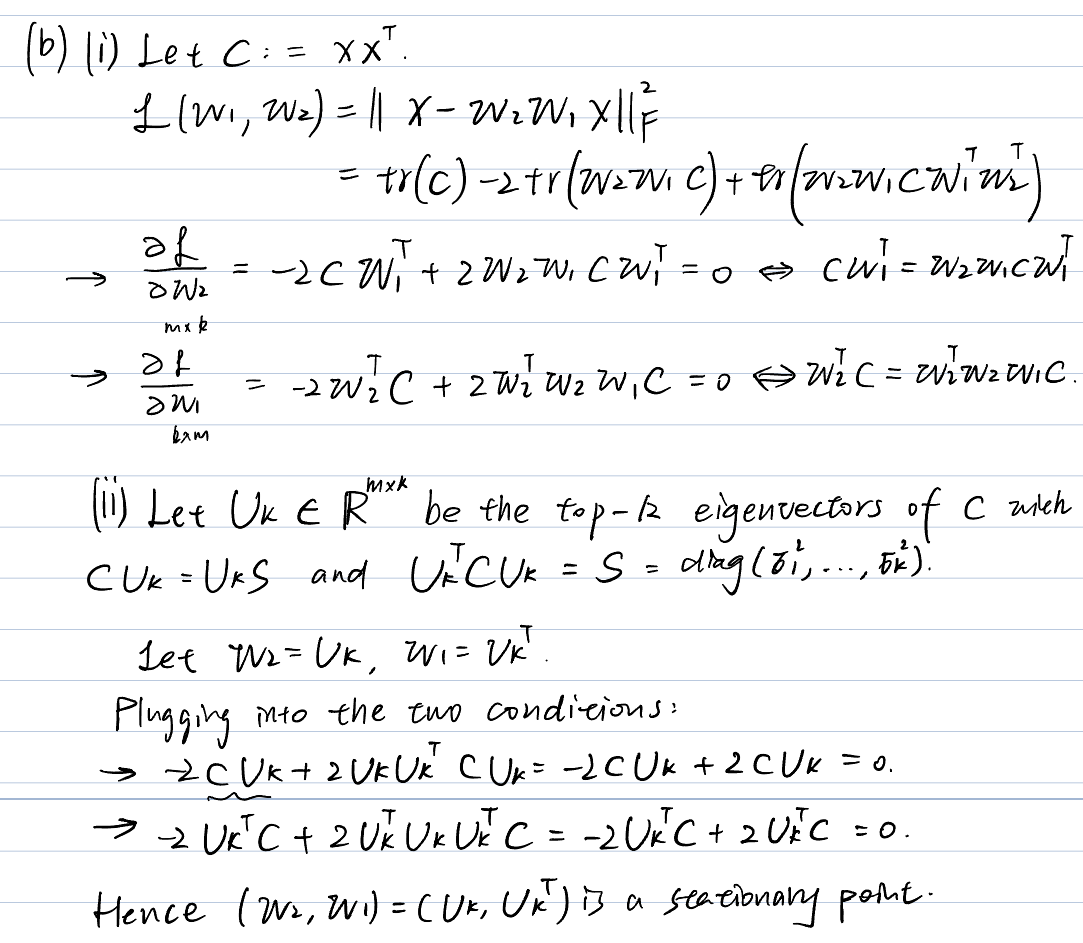 (b) (i) Let C := XXᵀ.
ℒ(W₁, W₂) = ‖ X − W₂W₁X‖²_F
= tr(C) − 2tr(W₂W₁C) + tr(W₂W₁CW₁ᵀW₂ᵀ)
→ ∂ℒ/∂W₂ = −2CW₁ᵀ + 2W₂W₁CW₁ᵀ = 0 ⇔ CW₁ᵀ = W₂W₁CW₁ᵀ
m×k
→ ∂ℒ/∂W₁ = −2W₂ᵀC + 2W₂ᵀW₂W₁C = 0 ⇔ W₂ᵀC = W₂ᵀW₂W₁C.
k×m
(ii) Let U_K ∈ ℝ^{m×k} be the top-k eigenvectors of C with
CU_K = U_KS and U_KᵀCU_K = S = diag(σ₁², ..., σ_K²).
Let W₂ = U_K, W₁ = U_Kᵀ.
Plugging into the two conditions:
→ −2CU_K + 2U_KU_Kᵀ CU_K = −2CU_K + 2CU_K = 0.
→ −2U_KᵀC + 2U_KᵀU_KU_KᵀC = −2U_KᵀC + 2U_KᵀC = 0.
Hence (W₂, W₁) = (U_K, U_Kᵀ) is a stationary point.